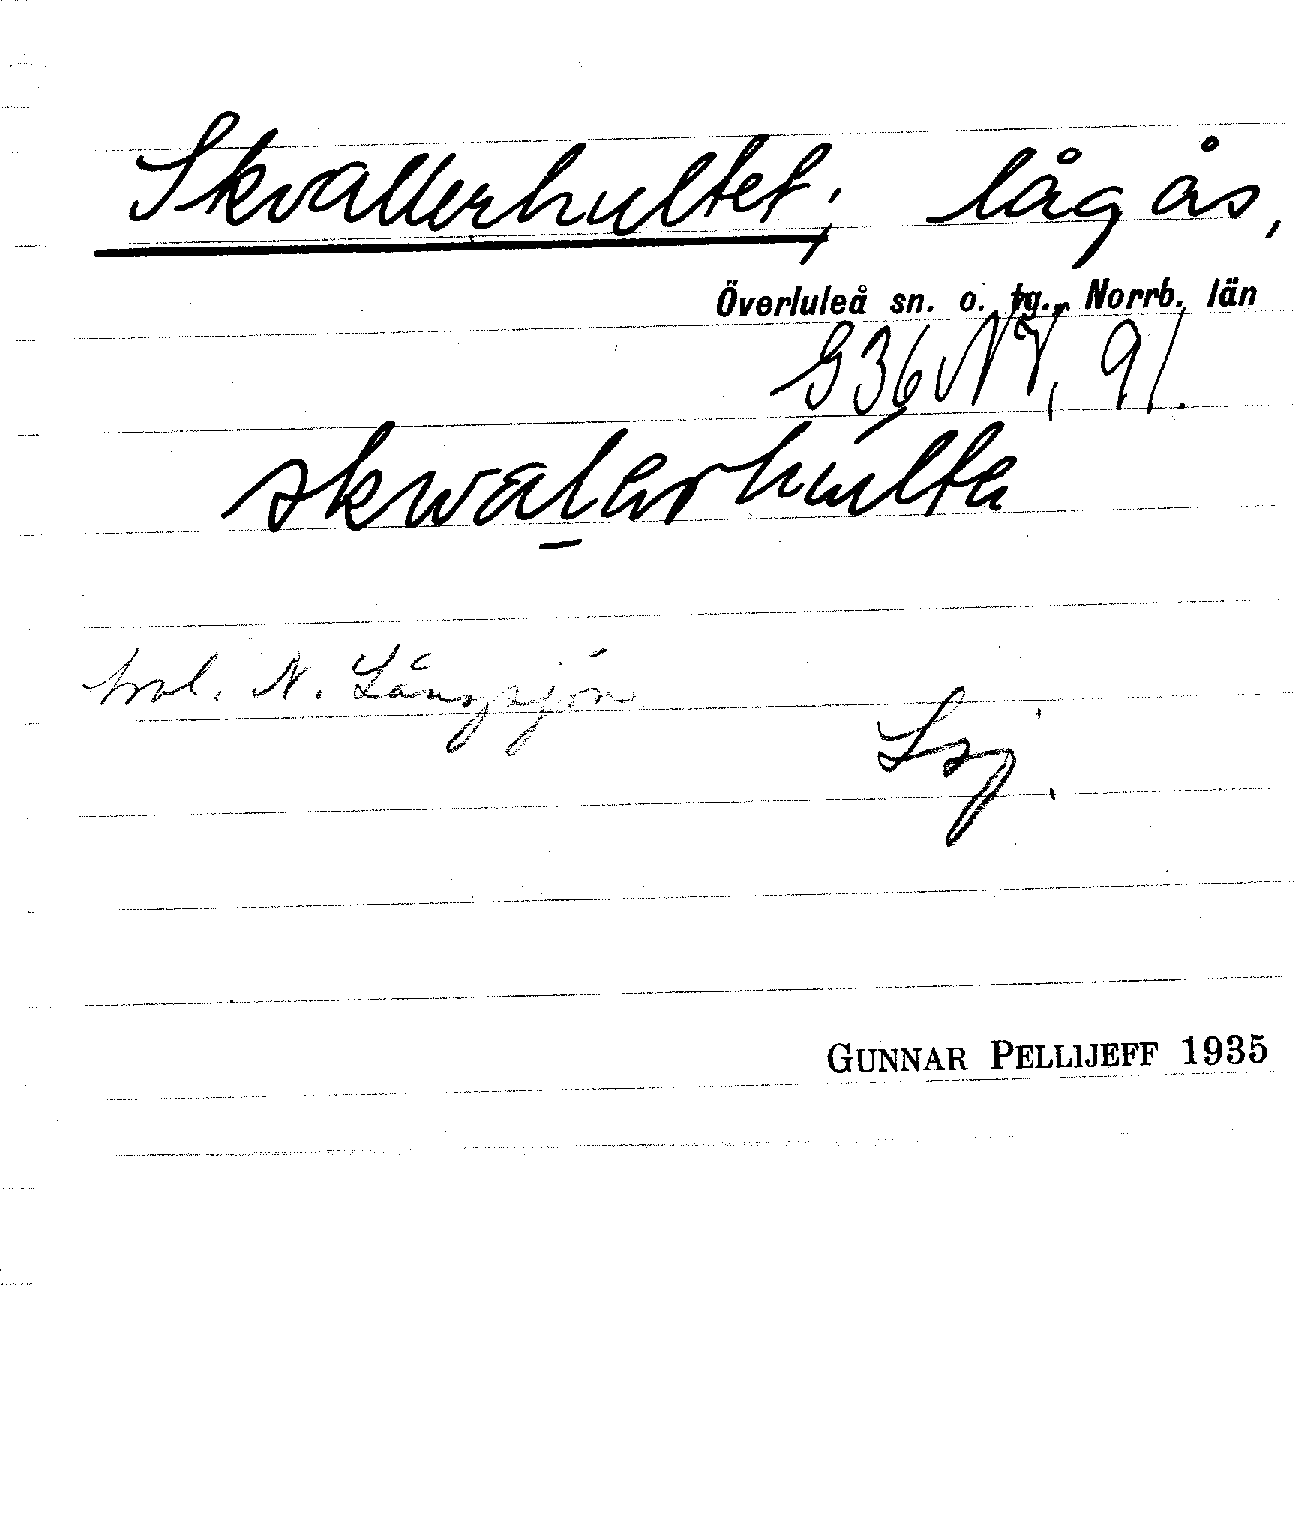 Skvallerhultet; låg ås,
Överluleå sn. o. tg., Norrb. län
G36 NV, 91.
skwalerhulte
N. Långsjön
Lsj.
GUNNAR PELLIJEFF 1935